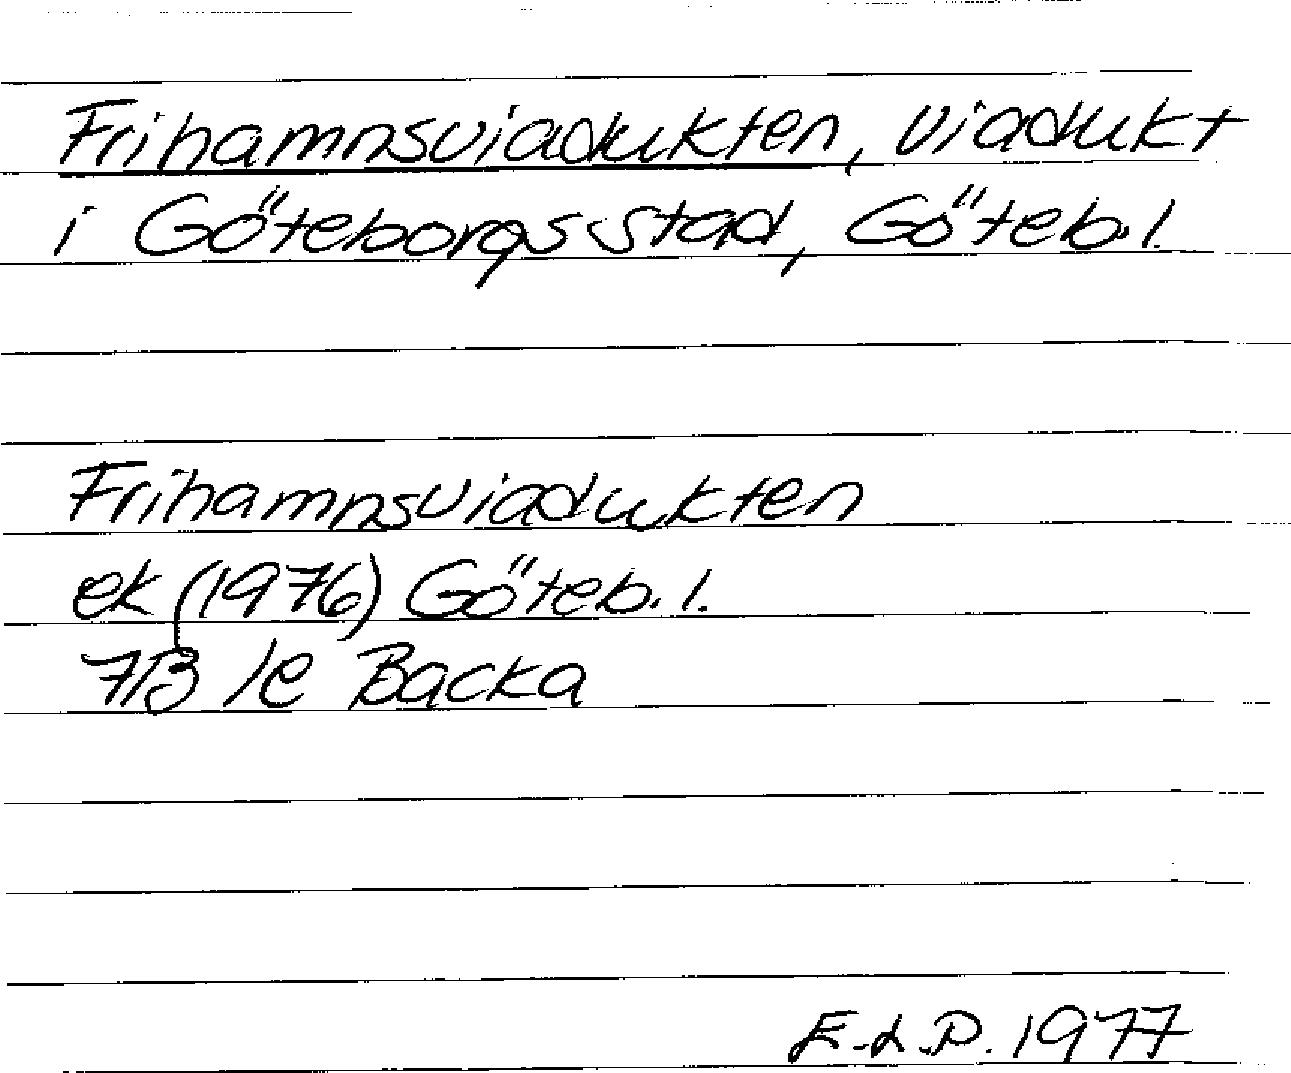 Frihamnsviadukten, viadukt
i Göteborgs stad, Göteb. l.
Frihamnsviadukten
ek (1976) Göteb. l.
7B 1e Backa
E.L.P. 1977